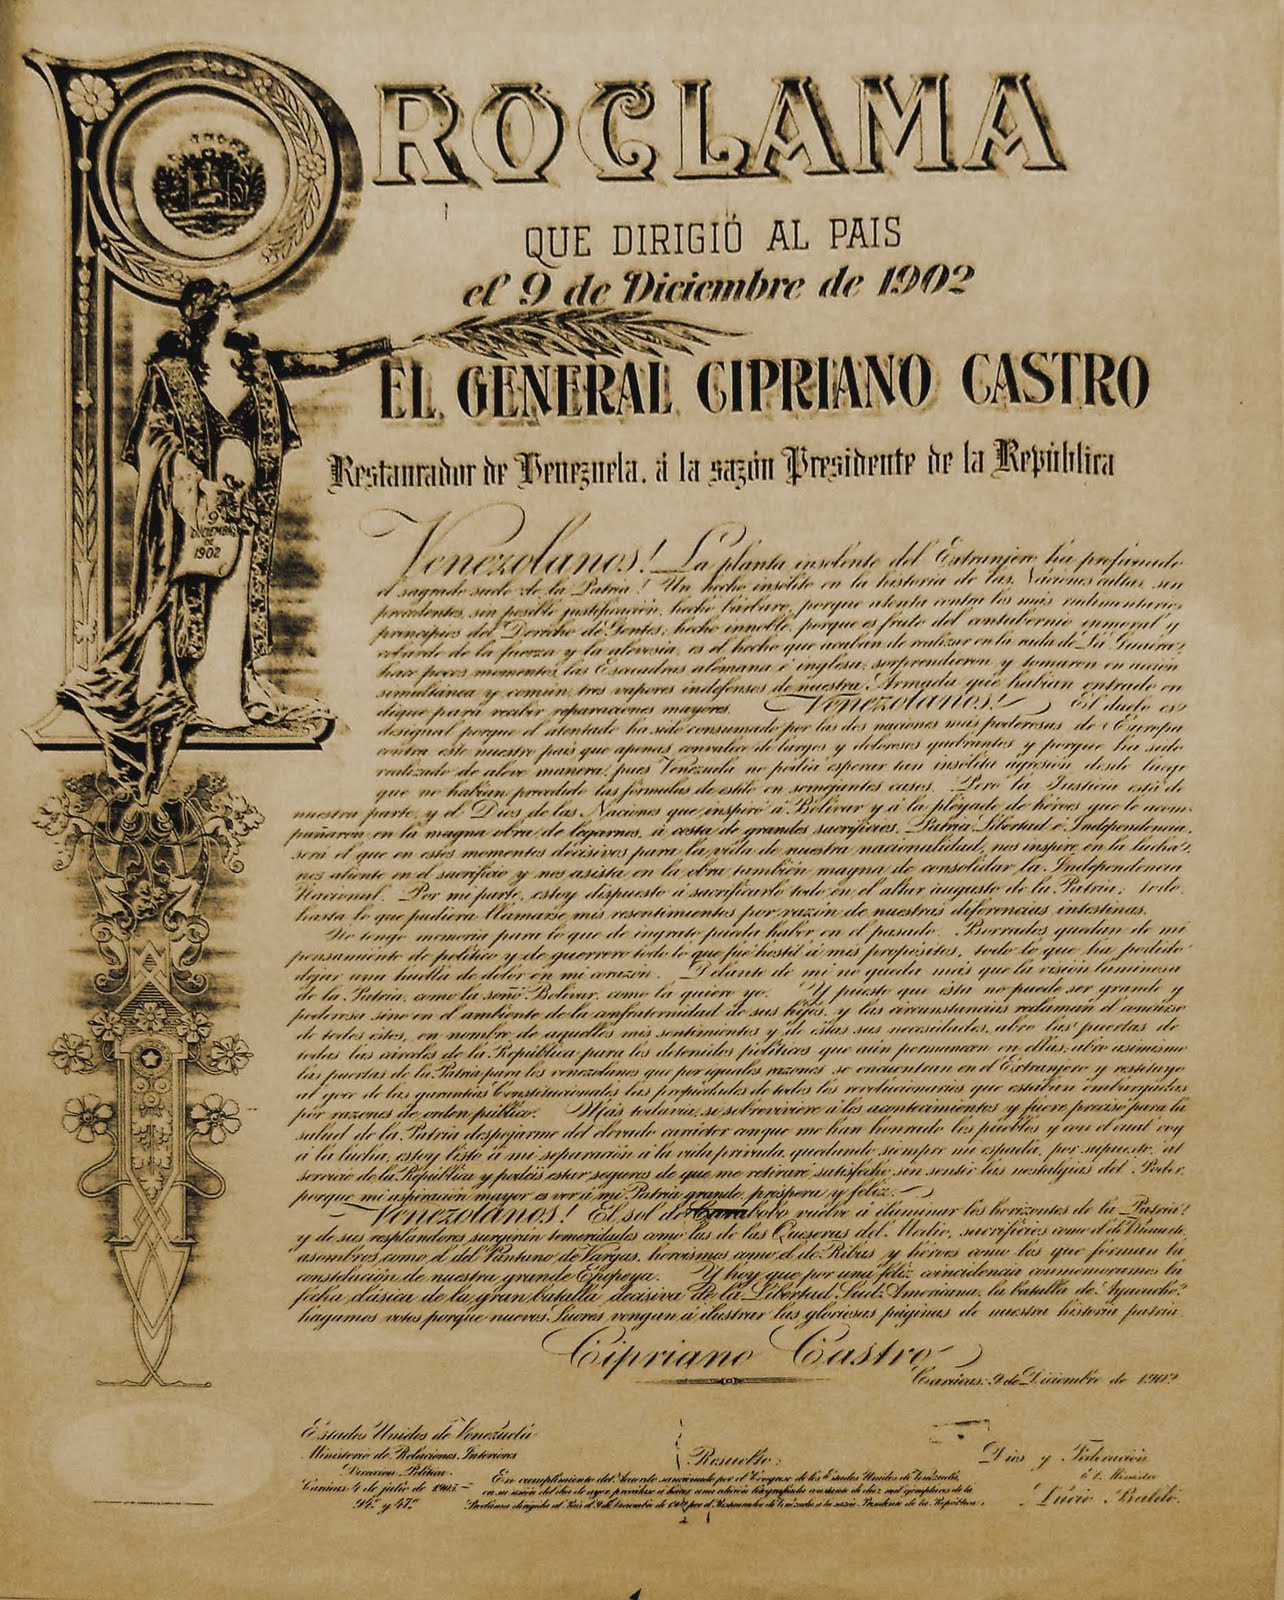 PROCLAMA
QUE DIRIGIÓ AL PAIS
el 9 de Diciembre de 1902
EL GENERAL CIPRIANO CASTRO
Restaurador de Venezuela, á la sazón Presidente de la República
9
DICIEMBRE
DE
1902
Venezolanos! La planta insolente del Extranjero ha profanado
el sagrado suelo de la Patria! Un hecho insólito en la historia de las Naciones cultas, sin
precedentes, sin posible justificación, hecho bárbaro, porque atenta contra los más rudimentarios
principios del Derecho de Gentes; hecho innoble, porque es fruto del contubernio inmoral y
cobarde de la fuerza y la alevosía, es el hecho que acaban de realizar en la rada de La Guaira,
hace pocos momentos, las Escuadras alemana é inglesa; sorprendieron y tomaron en acción
simultánea y común, tres vapores indefensos de nuestra Armada que habían entrado en
dique para recibir reparaciones mayores. Venezolanos! El duelo es
desigual porque el atentado ha sido consumado por las dos naciones más poderosas de Europa
contra este nuestro país que apenas convalece de largos y dolorosos quebrantos y porque ha sido
realizado de aleve manera, pues Venezuela no podía esperar tan insólita agresión desde luego
que no habían precedido las fórmulas de estilo en semejantes casos. Pero la Justicia está de
nuestra parte, y el Dios de las Naciones que inspiró á Bolívar y á la pléyade de héroes que le acom-
pañaron en la magna obra de legarnos, á costa de grandes sacrificios, Patria, Libertad é Independencia,
será el que en estos momentos decisivos para la vida de nuestra nacionalidad, nos inspire en la lucha,
nos aliente en el sacrificio y nos asista en la obra también magna de consolidar la Independencia
Nacional. Por mi parte, estoy dispuesto á sacrificarlo todo en el altar augusto de la Patria; todo,
hasta lo que pudiera llamarse mis resentimientos por razón de nuestras diferencias intestinas.
No tengo memoria para lo que de ingrato pueda haber en el pasado. Borrados quedan de mi
pensamiento de político y de guerrero todo lo que fué hostil á mis propósitos, todo lo que ha podido
dejar una huella de dolor en mi corazón. Delante de mí no queda más que la visión luminosa
de la Patria, como la soñó Bolívar, como la quiero yo. Y puesto que ésta no puede ser grande y
poderosa sino en el ambiente de la confraternidad de sus hijos, y las circunstancias reclaman el concurso
de todos éstos, en nombre de aquellos mis sentimientos y de estas sus necesidades, abro las puertas de
todas las cárceles de la República para los detenidos políticos que aún permanecen en ellas; abro asimismo
las puertas de la Patria para los venezolanos que por iguales razones se encuentran en el Extranjero y restituyo
al goce de las garantías Constitucionales las propiedades de todos los revolucionarios que estaban embargadas
por razones de orden público. Más todavía, si sobreviviere á los acontecimientos y fuere preciso para la
salud de la Patria despojarme del elevado carácter con que me han honrado los pueblos y con el cual voy
á la lucha, estoy listo á mi separación á la vida privada, quedando siempre mi espada, por supuesto, al
servicio de la República y podéis estar seguros de que me retiraré satisfecho, sin sentir las nostalgias del Poder,
porque mi aspiración mayor es ver á mi Patria grande, próspera y feliz.
Venezolanos! El sol de Carabobo vuelve á iluminar los horizontes de la Patria
y de sus resplandores surgirán temeridades como las de las Queseras del Medio, sacrificios como el de Ricaurte,
asombros como el del Pantano de Vargas, heroísmos como el de Ribas, y héroes como los que forman la
constelación de nuestra grande Epopeya. Y hoy que por una feliz coincidencia conmemoramos la
fecha clásica de la gran batalla decisiva de la Libertad Sud-Americana, la batalla de Ayacucho,
hagamos votos porque nuevos Sucres vengan á ilustrar las gloriosas páginas de nuestra historia patria.
Cipriano Castro
Caracas: 9 de Diciembre de 1902
Estados Unidos de Venezuela
Ministerio de Relaciones Interiores
Dirección Política.
Caracas: 4 de julio de 1905.
94º y 47º
Resuelto:
En cumplimiento del Acuerdo sancionado por el Congreso de los Estados Unidos de Venezuela,
en su sesión del día de ayer, procédase á hacer una edición litografiada constante de diez mil ejemplares de la
Proclama dirigida al País el 9 de Diciembre de 1902 por el Restaurador de Venezuela á la sazón Presidente de la República.
Dios y Federación
El Ministro
Lucio Baldó.